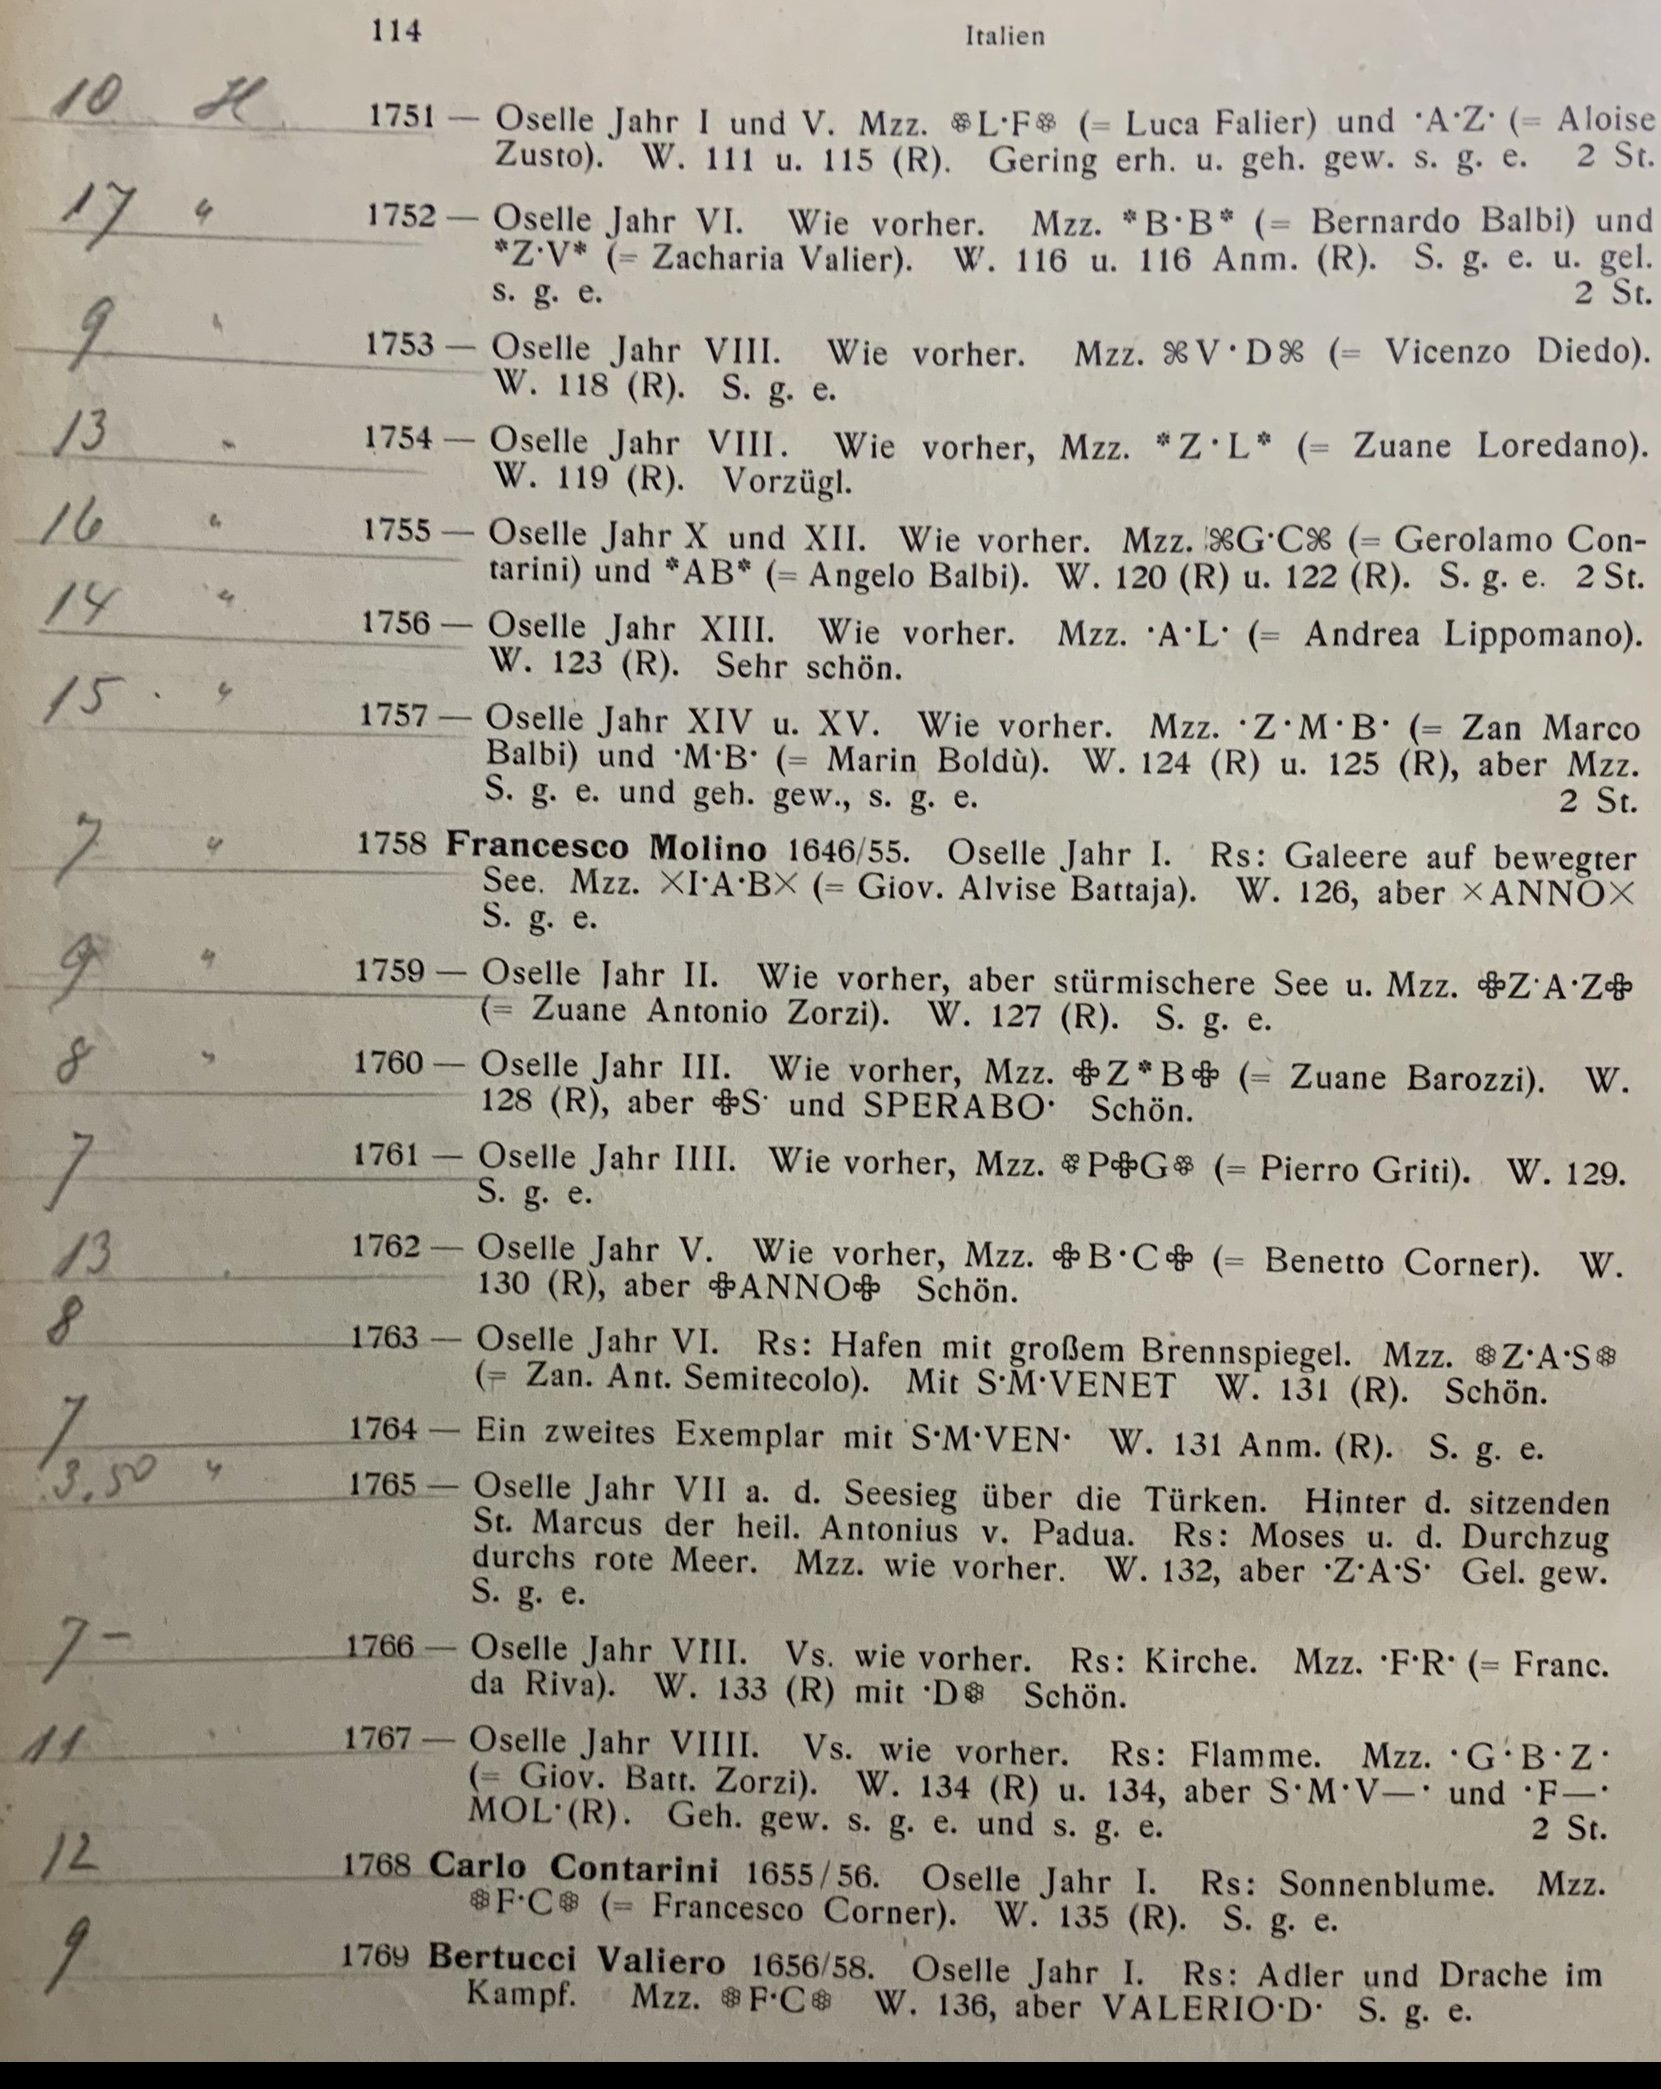 114 Italien
10 H 1751 — Oselle Jahr I und V. Mzz. ❁L·F❁ (= Luca Falier) und ·A·Z· (= Aloise
Zusto). W. 111 u. 115 (R). Gering erh. u. geh. gew. s. g. e. 2 St.
17 " 1752 — Oselle Jahr VI. Wie vorher. Mzz. *B·B* (= Bernardo Balbi) und
*Z·V* (= Zacharia Valier). W. 116 u. 116 Anm. (R). S. g. e. u. gel.
s. g. e. 2 St.
9 " 1753 — Oselle Jahr VIII. Wie vorher. Mzz. ⌘V·D⌘ (= Vicenzo Diedo).
W. 118 (R). S. g. e.
13 " 1754 — Oselle Jahr VIII. Wie vorher, Mzz. *Z·L* (= Zuane Loredano).
W. 119 (R). Vorzügl.
16 " 1755 — Oselle Jahr X und XII. Wie vorher. Mzz. ⌘G·C⌘ (= Gerolamo Con-
tarini) und *AB* (= Angelo Balbi). W. 120 (R) u. 122 (R). S. g. e. 2 St.
14 " 1756 — Oselle Jahr XIII. Wie vorher. Mzz. ·A·L· (= Andrea Lippomano).
W. 123 (R). Sehr schön.
15 " 1757 — Oselle Jahr XIV u. XV. Wie vorher. Mzz. ·Z·M·B· (= Zan Marco
Balbi) und ·M·B· (= Marin Boldù). W. 124 (R) u. 125 (R), aber Mzz.
S. g. e. und geh. gew., s. g. e. 2 St.
7 " 1758 Francesco Molino 1646/55. Oselle Jahr I. Rs: Galeere auf bewegter
See. Mzz. ×I·A·B× (= Giov. Alvise Battaja). W. 126, aber ×ANNO×
S. g. e.
9 " 1759 — Oselle Jahr II. Wie vorher, aber stürmischere See u. Mzz. ✤Z·A·Z✤
(= Zuane Antonio Zorzi). W. 127 (R). S. g. e.
8 " 1760 — Oselle Jahr III. Wie vorher, Mzz. ✤Z*B✤ (= Zuane Barozzi). W.
128 (R), aber ✤S· und SPERABO· Schön.
7 1761 — Oselle Jahr IIII. Wie vorher, Mzz. ❁P✤G❁ (= Pierro Griti). W. 129.
S. g. e.
13 1762 — Oselle Jahr V. Wie vorher, Mzz. ✤B·C✤ (= Benetto Corner). W.
130 (R), aber ✤ANNO✤ Schön.
8 1763 — Oselle Jahr VI. Rs: Hafen mit großem Brennspiegel. Mzz. ❁Z·A·S❁
(= Zan. Ant. Semitecolo). Mit S·M·VENET W. 131 (R). Schön.
7 1764 — Ein zweites Exemplar mit S·M·VEN· W. 131 Anm. (R). S. g. e.
3.50 " 1765 — Oselle Jahr VII a. d. Seesieg über die Türken. Hinter d. sitzenden
St. Marcus der heil. Antonius v. Padua. Rs: Moses u. d. Durchzug
durchs rote Meer. Mzz. wie vorher. W. 132, aber ·Z·A·S· Gel. gew.
S. g. e.
7 — 1766 — Oselle Jahr VIII. Vs. wie vorher. Rs: Kirche. Mzz. ·F·R· (= Franc.
da Riva). W. 133 (R) mit ·D❁ Schön.
11 1767 — Oselle Jahr VIIII. Vs. wie vorher. Rs: Flamme. Mzz. ·G·B·Z·
(= Giov. Batt. Zorzi). W. 134 (R) u. 134, aber S·M·V—· und ·F—·
MOL·(R). Geh. gew. s. g. e. und s. g. e. 2 St.
12 1768 Carlo Contarini 1655/56. Oselle Jahr I. Rs: Sonnenblume. Mzz.
❁F·C❁ (= Francesco Corner). W. 135 (R). S. g. e.
9 1769 Bertucci Valiero 1656/58. Oselle Jahr I. Rs: Adler und Drache im
Kampf. Mzz. ❁F·C❁ W. 136, aber VALERIO·D· S. g. e.